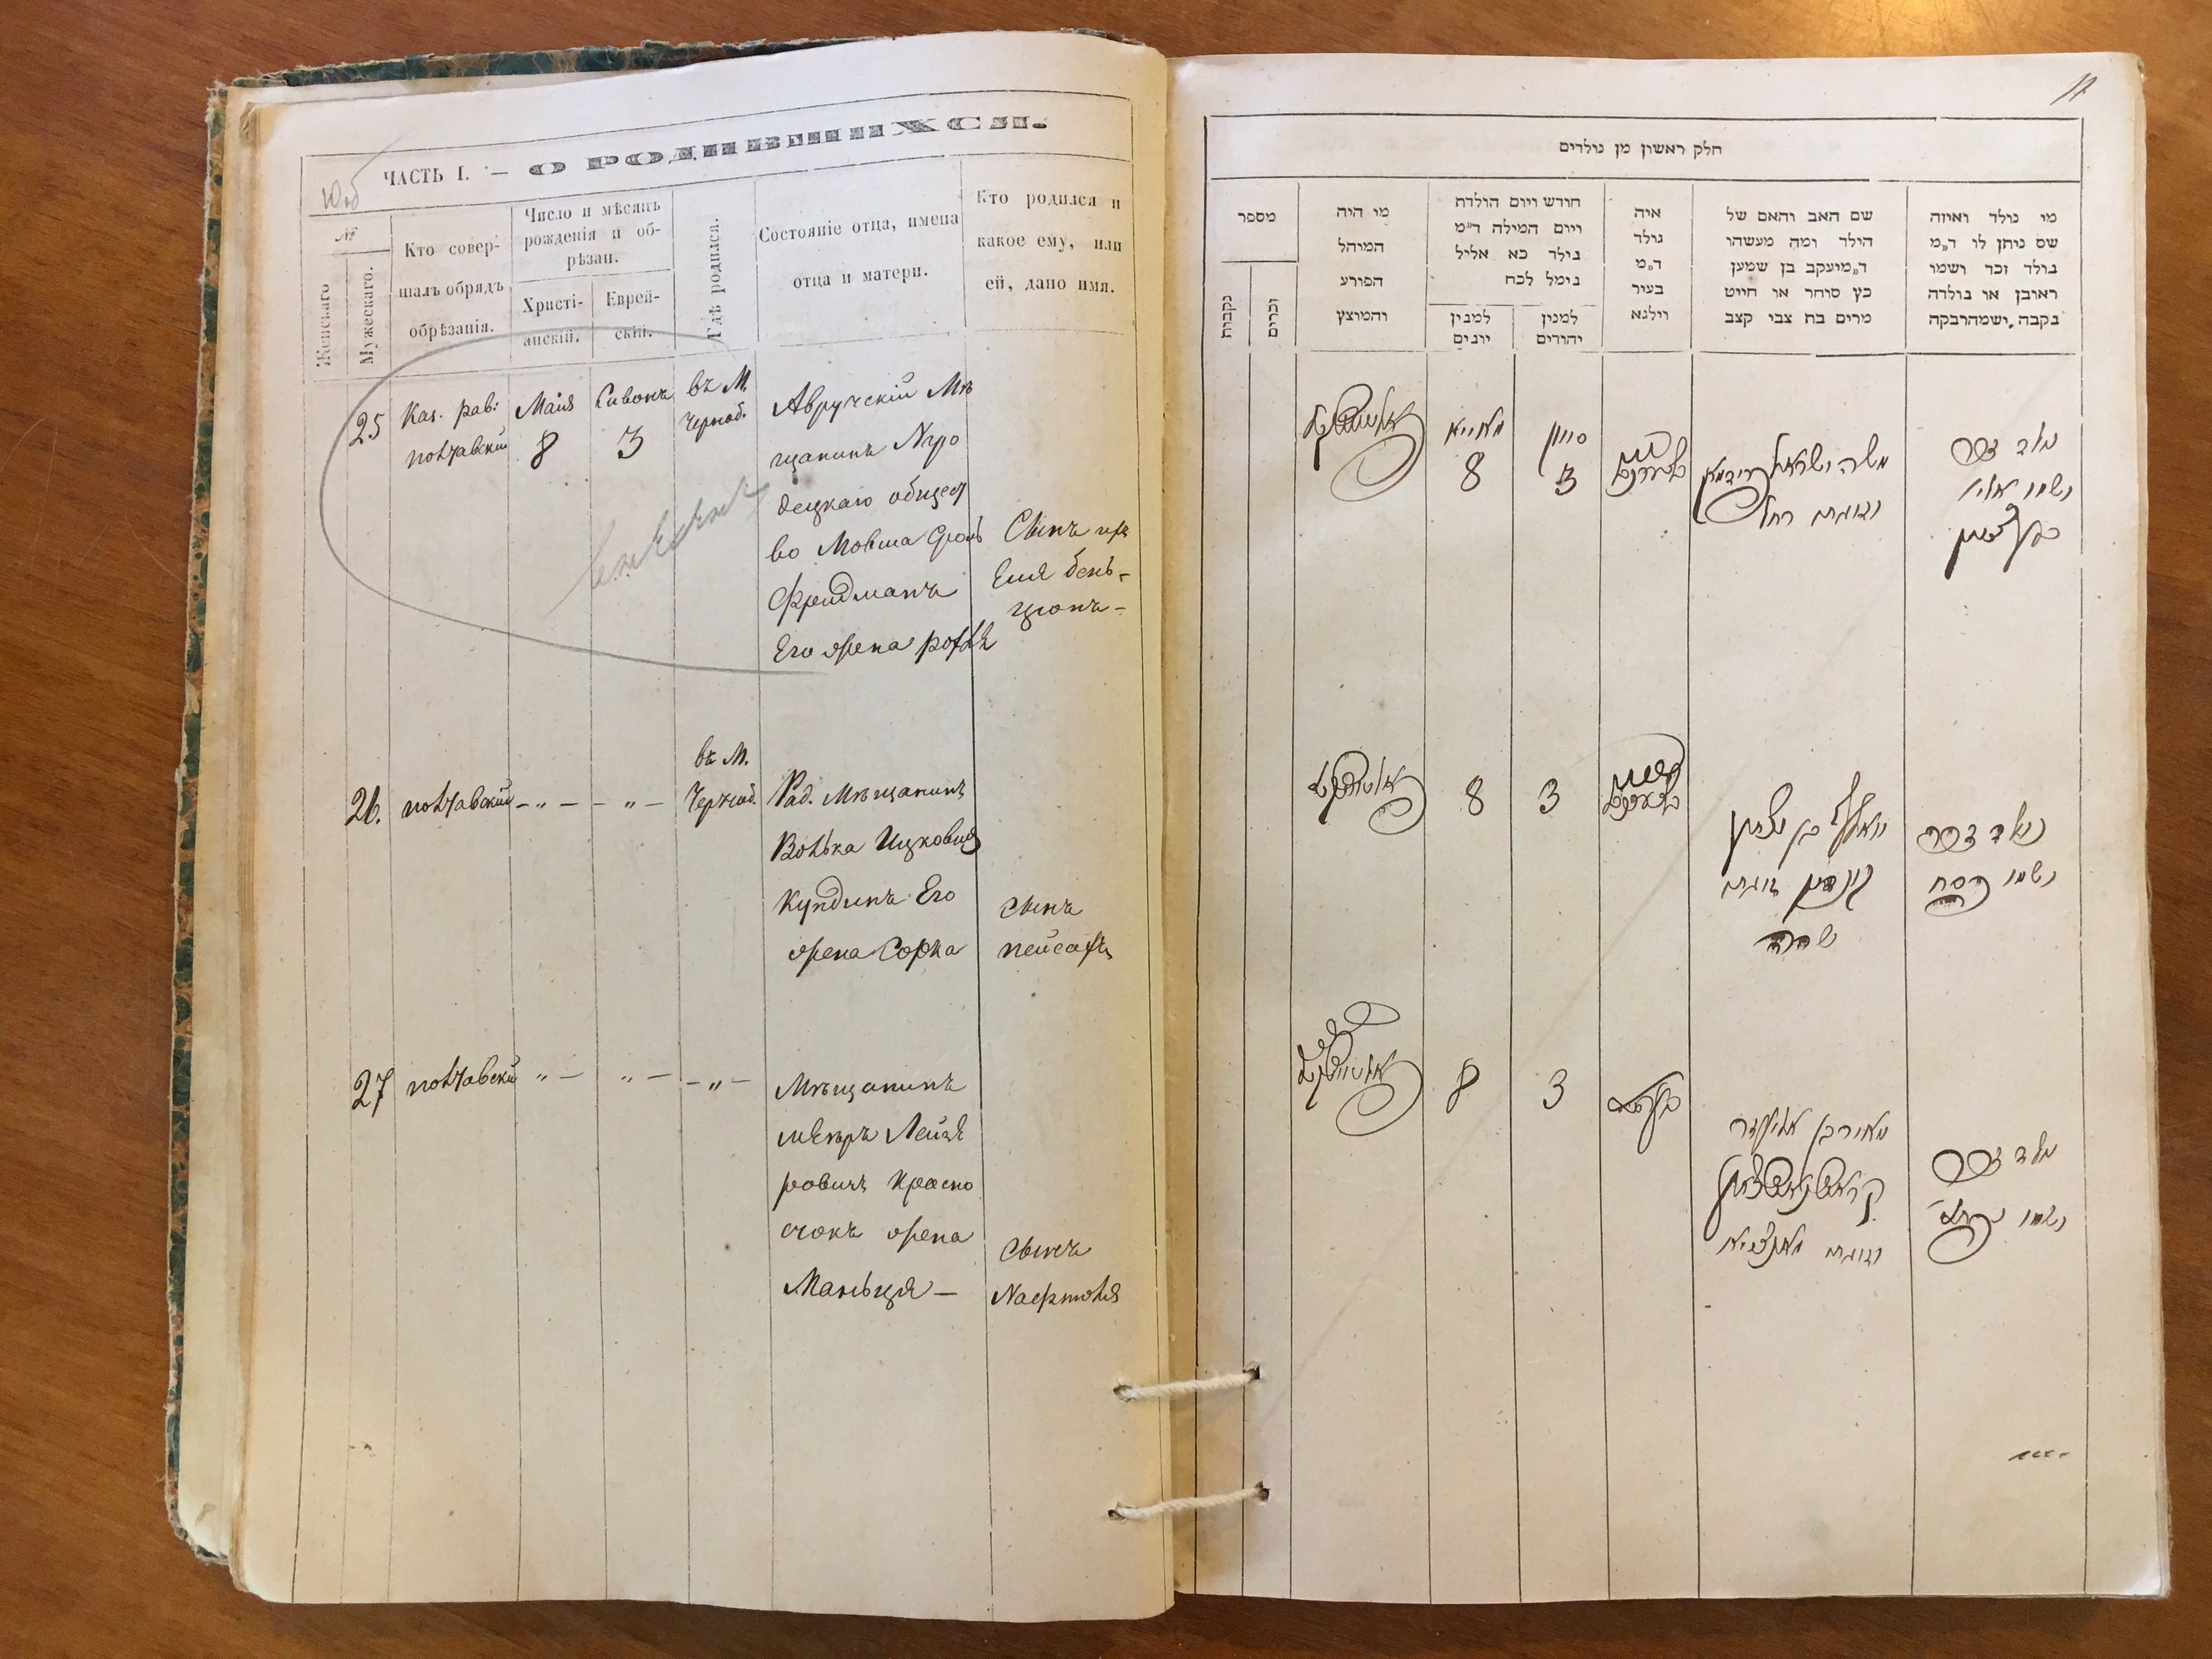 ЧАСТЬ I. — О РОДИВШИХСЯ.
№
Женскаго
Мужескаго.
Кто совер-
шалъ обрядъ
обрѣзанія.
Число и мѣсяцъ
рожденія и об-
рѣзан.
Христі-
анскій.
Еврей-
скій.
Гдѣ родился.
Состояніе отца, имена
отца и матери.
Кто родился и
какое ему, или
ей, дано имя.
25
Каз. рав:
полтавскій
Мая
8
Сивонъ
3
въ М.
Черноб.
Авручскій Мѣ
щанинъ
общест
во Мовша Сроль
Фридманъ
Его жена
Сынъ
Еля бень-
ціонъ -
26.
полтавскій
— „ —
— „ —
въ М.
Черноб.
Рад. Мѣщанинъ
Волька Ицковичъ
Кундинъ Его
жена Сорка
сынъ
пейсахъ
27
полтавскій
„ —
„ —
— „ —
Мѣщанинъ
Мееръ Лейзе
ровичъ Красно
жена
Маньця —
сынъ
Нафтоля
11
חלק ראשון מן נולדים
מספר
נקבות
זכרים
מי היה
המוהל
הפורע
והמוצץ
חודש ויום הולדת
ויום המילה ד״מ
נילד כא אליל
נימל לכח
למנין
יונים
למנין
יהודים
איה
נולד
ד״מ
בעיר
וילנא
שם האב והאם של
הילד ומה מעשהו
ד״מיעקב בן שמען
כץ סוחר או חייט
מרים בת צבי קצב
מי נולד ואיזה
שם ניתן לו ד״מ
נולד זכר ושמו
ראובן או נולדה
נקבה ישמהרבקה
מאייא
8
סיון
3
משה ישראל פרידמאן
וזוגתו רחל
נולד זכר
ושמו אלי'
בן ציון
8
3
וואלף בן איציק
קונדין זוגתו
שרה
נולד זכר
ושמו פסח
8
3
מאיר בן אליעזר
וזוגתו מאנציא
נולד זכר
ושמו נפתלי